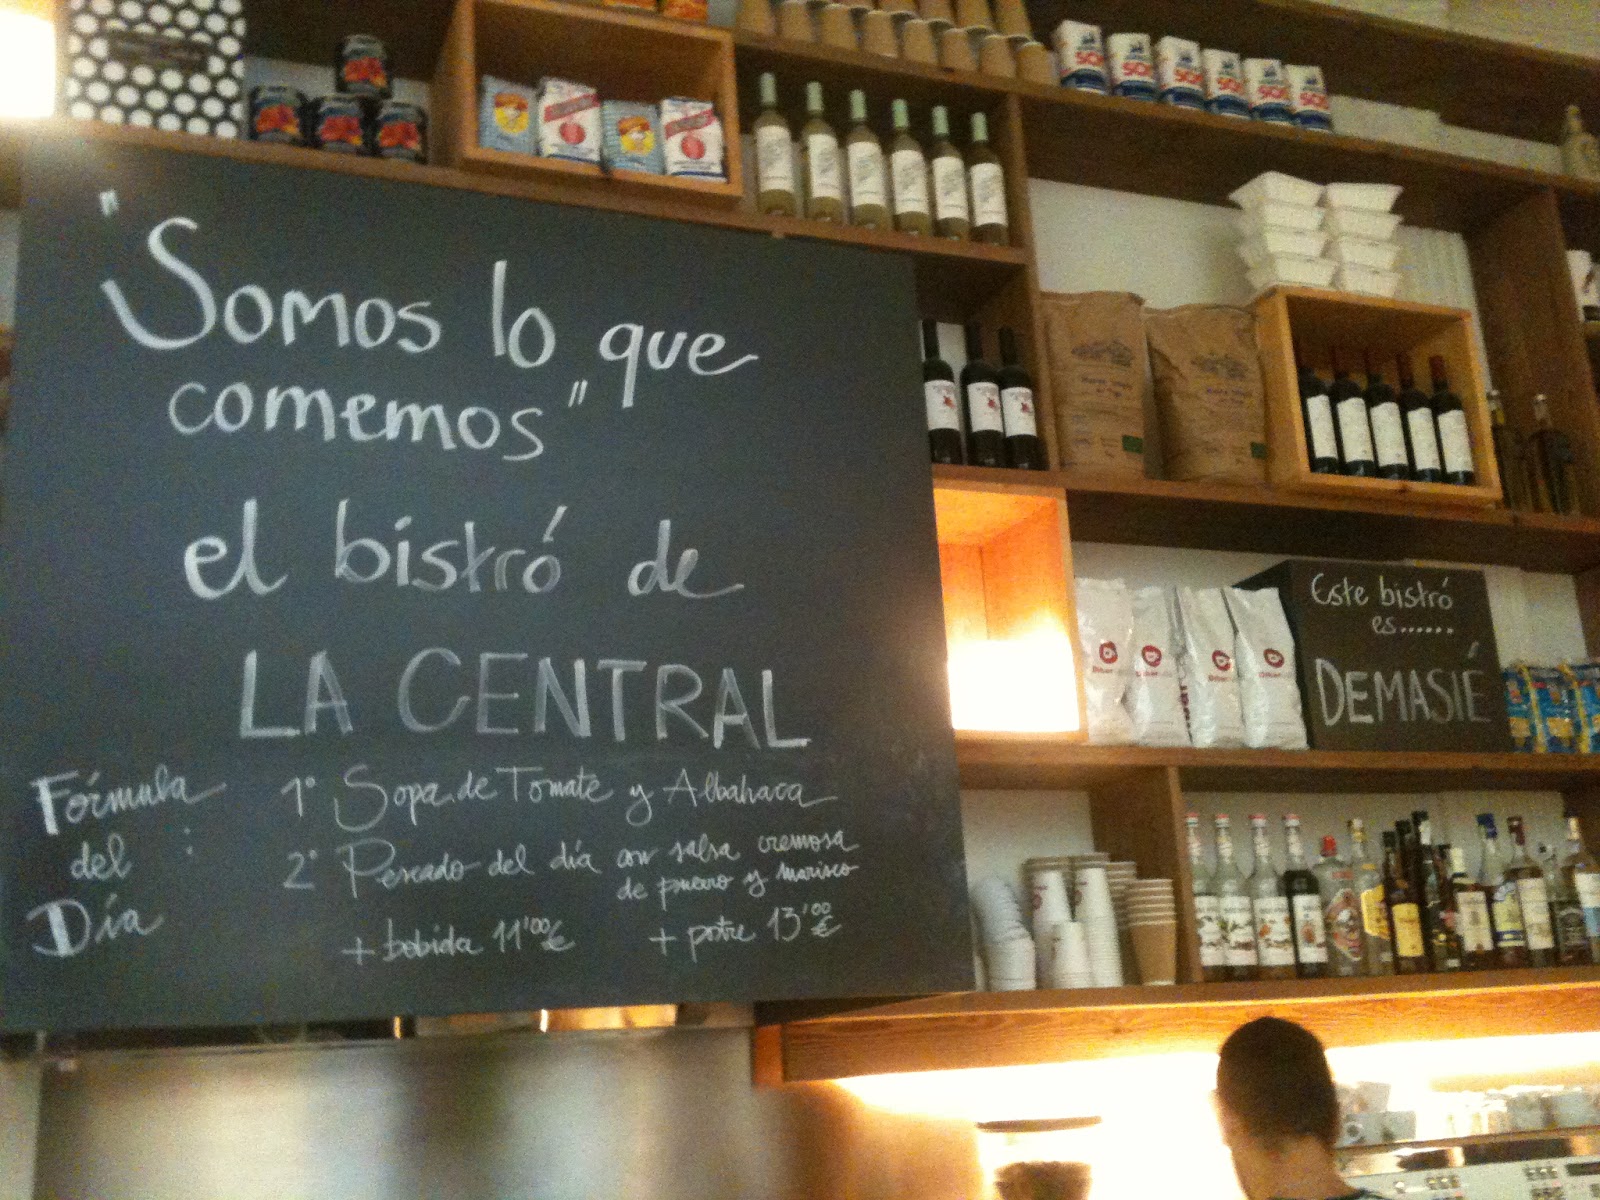 "Somos lo que
comemos"
el bistró de
LA CENTRAL
Fórmula
del :
Día
1º Sopa de Tomate y Albahaca
2º Pescado del día con salsa cremosa
de puerro y marisco
+ bebida 11'00€ + postre 13'00€
Este bistró
es......
DEMASIÉ
SOS
SOS
SOS
SOS
SOS
SOS